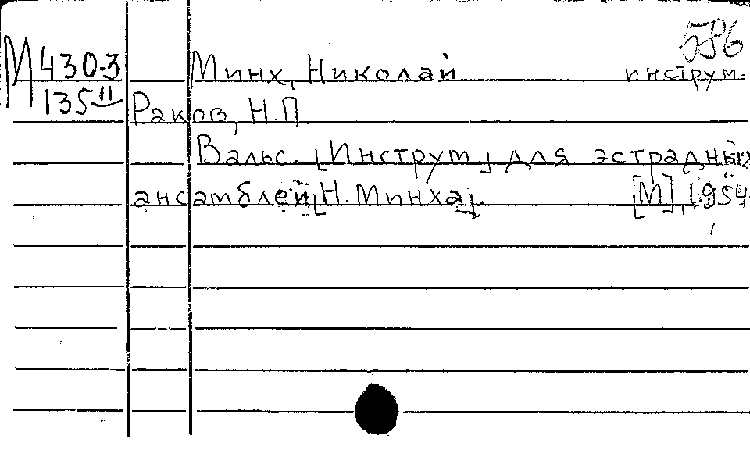 586
М 430-3 Минх, Николай инструм.
135 II Раков, Н.П.
Вальс. [Инструм] для эстрадных
ансамблей [Н. Минха]. [М], 1954.